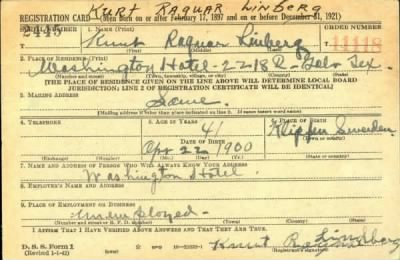 KURT RAGUAR LINBERG
REGISTRATION CARD—(Men born on or after February 17, 1897 and on or before December 31, 1921)
2449
1. Name (Print)
Kurt Raguar Linberg
11118
(First) (Middle) (Last)
2. Place of Residence (Print)
Washington Hotel-2-2-18
Tex
(Number and street) (Town, township, village, or city) (County) (State)
[THE PLACE OF RESIDENCE GIVEN ON THE LINE ABOVE WILL DETERMINE LOCAL BOARD
JURISDICTION; LINE 2 OF REGISTRATION CERTIFICATE WILL BE IDENTICAL]
3. Mailing Address
Same
(Mailing address if other than place indicated on line 2. If same insert word same)
4. Telephone
5. Age in Years
41
6. Place of Birth
Date of Birth
Sweden
Apr 22 1900
(Exchange) (Number) (Mo.) (Day) (Yr.) (State or country)
7. Name and Address of Person Who Will Always Know Your Address
Washington Hotel
8. Employer's Name and Address
9. Place of Employment or Business
Unemployed
(Number and street or R. F. D. number) (Town) (County) (State)
I Affirm That I Have Verified Above Answers and That They Are True.
D. S. S. Form 1
(Revised 1-1-42)
(Registrant's signature)